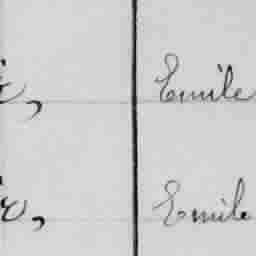 Emile
Emile